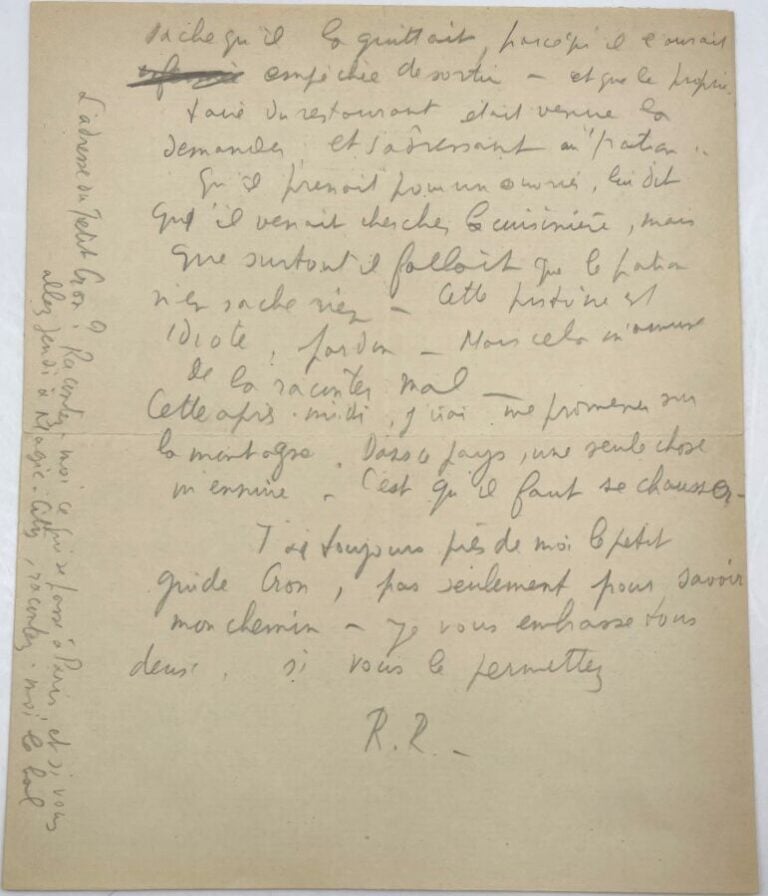 sache qu'il la quittait, parce qu'il l'aurait
empêchée de sortir – et que le proprié-
taire du restaurant était venue la
demander et s'adressant au patron ..
qu'il prenait pour un ouvrier, lui dit
qu'il venait chercher la cuisinière, mais
que surtout il fallait que le patron
n'en sache rien – Cette histoire est
idiote, pardon – Mais cela m'amuse
de la raconter mal –
Cette après-midi, j'irai me promener sur
la montagne. Dans ce pays, une seule chose
m'ennuie – C'est qu'il faut se chausser –
J'ai toujours près de moi le petit
guide Cron, pas seulement pour savoir
mon chemin – Je vous embrasse tous
deux, si vous le permettez
R.R. –
L'adresse du petit Cron ? Racontez-moi ce qui se passe à Paris, et si vous
allez Jeudi à Magic-City, racontez-moi le bal